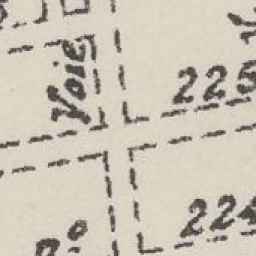 Voie
225
224